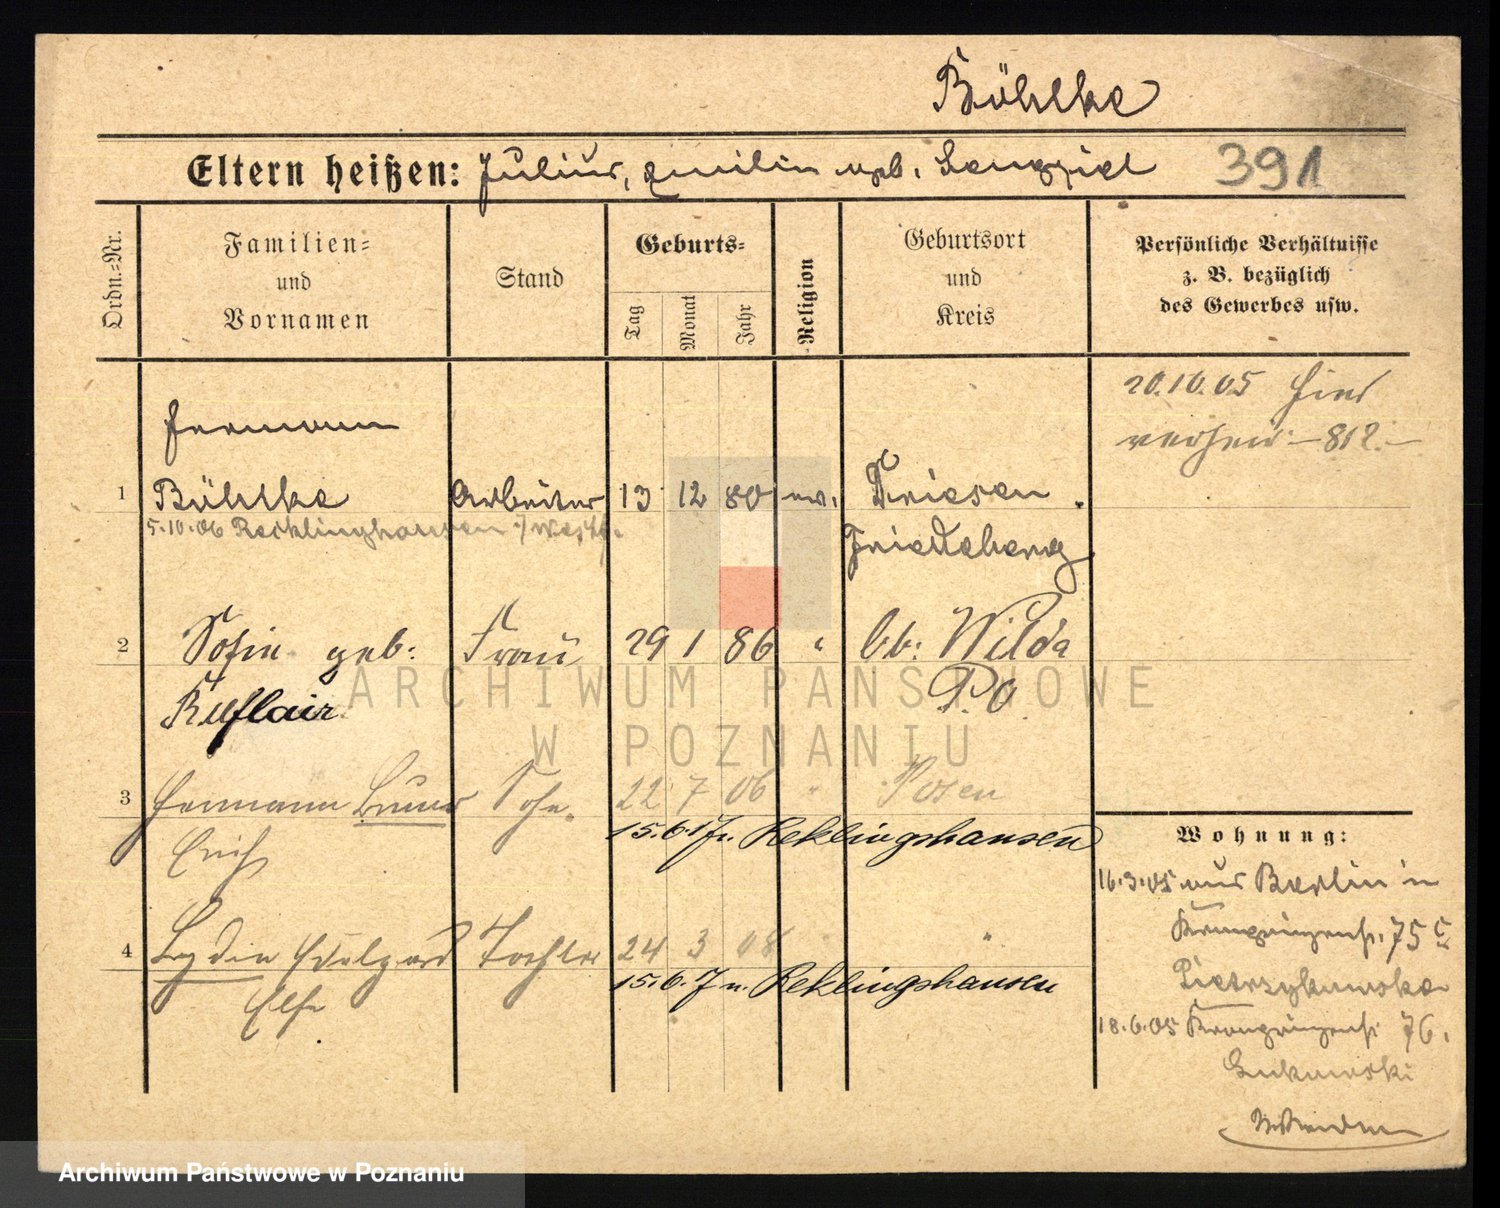 Böhlke
Eltern heißen: Julius, Emilie geb.
391
Ordn.=Nr.
Familien=
und
Vornamen
Stand
Geburts=
Tag
Monat
Jahr
Religion
Geburtsort
und
Kreis
Persönliche Verhältnisse
z. B. bezüglich
des Gewerbes usw.
20.10.05 hier
verheir. – 812. –
Hermann
1 Böhlke Arbeiter 13 12 80 ev. Driesen
5.10.06 Recklinghausen i/Westf.
Friedeberg
2 Sofie geb: Frau 29 1 86 " bb: Wilda
Ruflair P.O.
ARCHIWUM PAŃSTWOWE
W POZNANIU
3 Hermann Bruno Sohn 22 7 06 " Posen
15.6.17 n. Reklingshausen
Erich
4 Lydia Hildegard Tochter 24 3 08 "
15.6.17 n. Reklingshausen
Else
Wohnung:
16.3.05 aus Berlin in
Kronprinzenst. 75 c
Pietrzykowska
18.6.05 Kronprinzenst. 76.
Lukowski
Archiwum Państwowe w Poznaniu